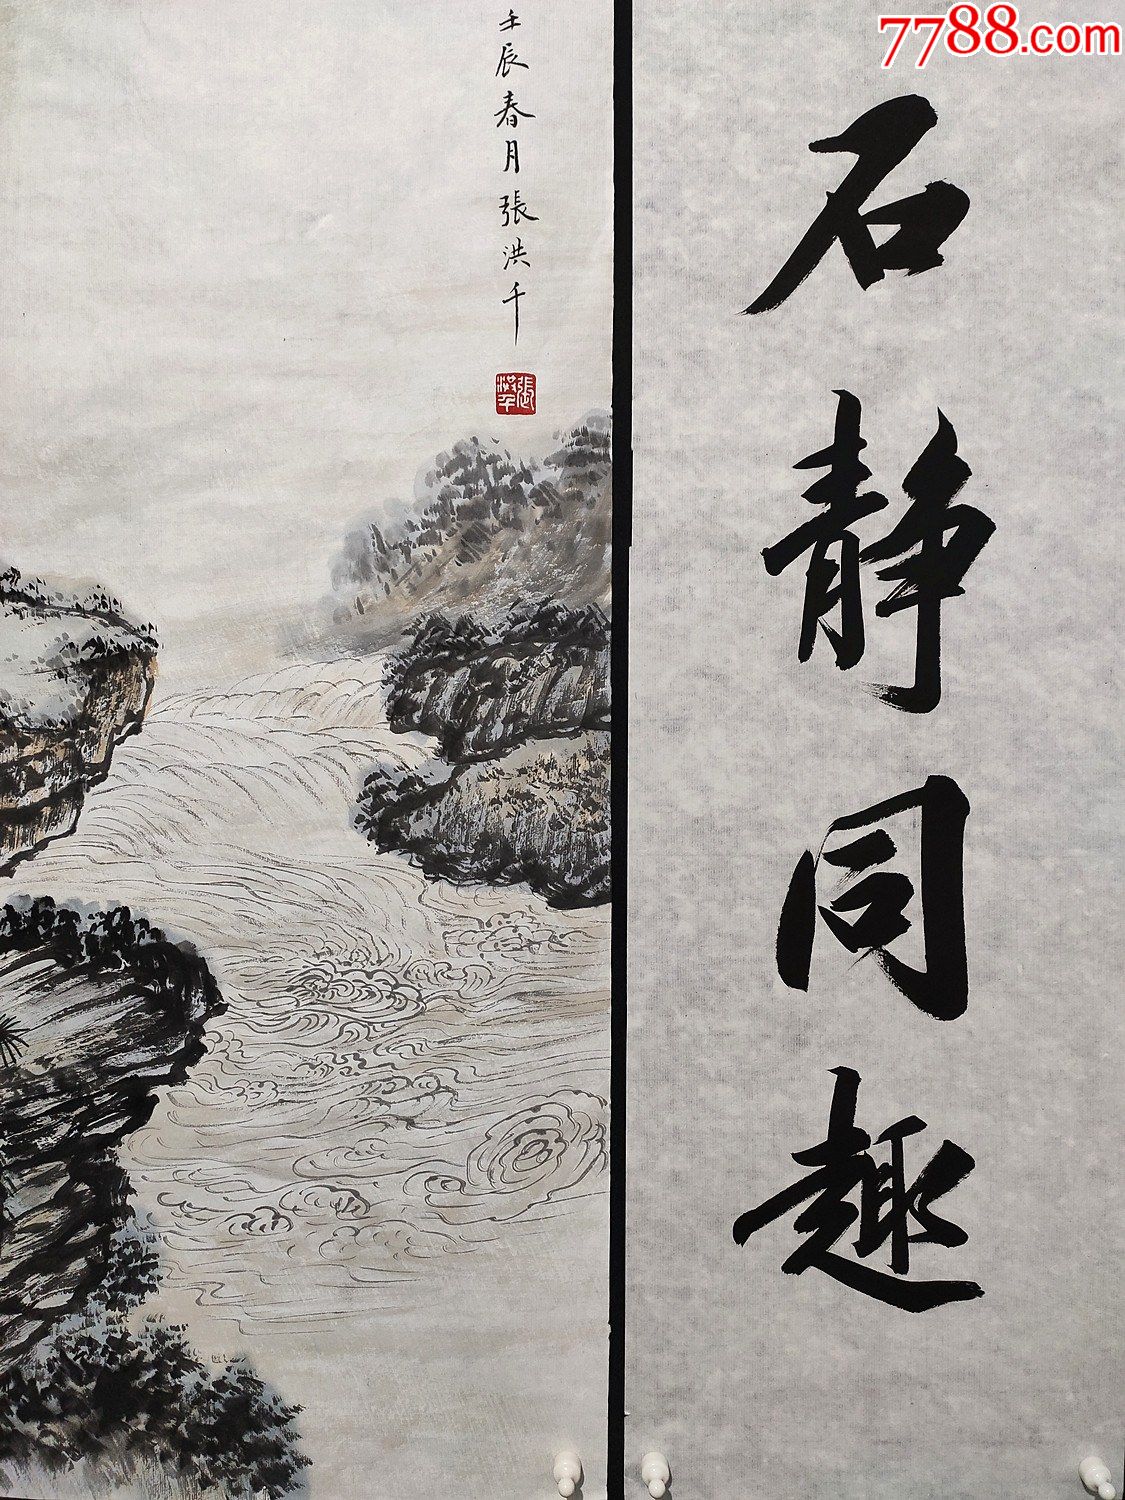 7788.com
石静同趣
壬辰春月張洪千
張洪千